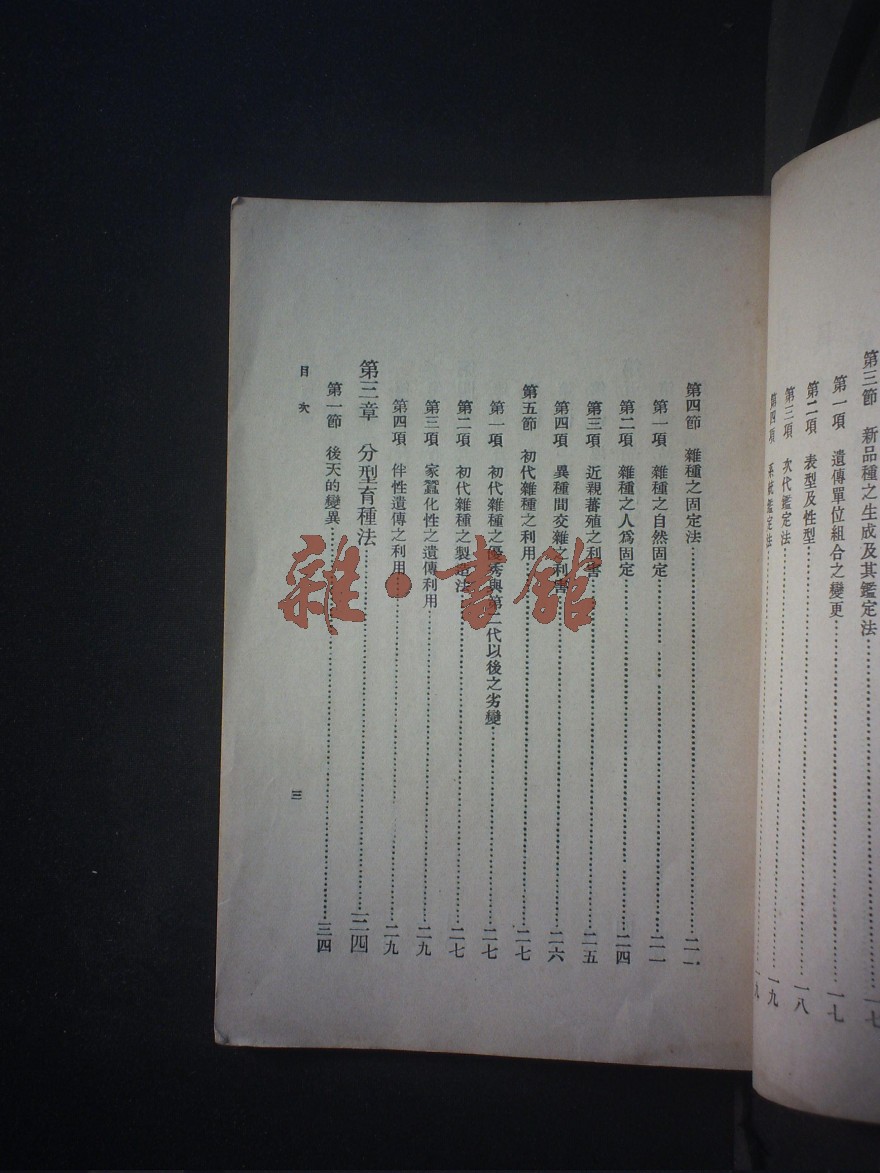 第三節　新品種之生成及其鑑定法……一七
第一項　遺傳單位組合之變更……一七
第二項　表型及性型……一八
第三項　次代鑑定法……一九
第四項　系統鑑定法……一九
第四節　雜種之固定法……二一
第一項　雜種之自然固定……二一
第二項　雜種之人爲固定……二四
第三項　近親蕃殖之利害……二五
第四項　異種間交雜之利害……二六
第五節　初代雜種之利用……二七
第一項　初代雜種之優秀與第二代以後之劣變……二七
第二項　初代雜種之製造法……二七
第三項　家蠶化性之遺傳利用……二九
第四項　伴性遺傳之利用……二九
第三章　分型育種法……三四
第一節　後天的變異……三四
目次
三
雜·書館